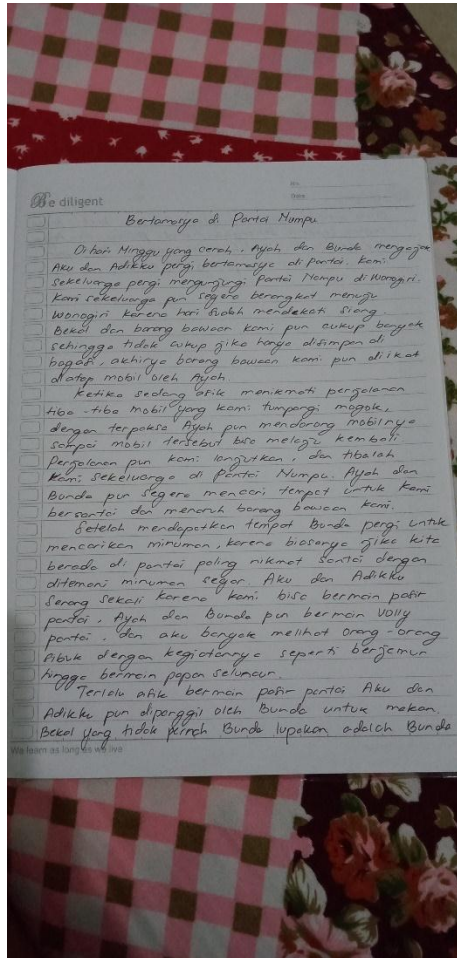 Be diligent
Bertamasya di Pantai Nampu
Di hari Minggu yang cerah, Ayah dan Bunda mengajak
Aku dan Adikku pergi bertamasya di pantai. Kami
sekeluarga pergi mengunjungi Pantai Nampu di Wonogiri.
Kami sekeluarga pun segera berangkat menuju
Wonogiri karena hari sudah mendekati siang.
Bekal dan barang bawaan kami pun cukup banyak
sehingga tidak cukup jika hanya disimpan di
bagasi, akhirya barang bawaan kami pun diikat
diatap mobil oleh Ayah.
Ketika sedang asik menikmati perjalanan
tiba-tiba mobil yang kami tumpangi mogok,
dengan terpaksa Ayah pun mendorong mobilnya
sampai mobil tersebut bisa melaju kembali
Perjalanan pun kami lanjutkan, dan tibalah
kami sekeluarga di Pantai Nampu. Ayah dan
Bunda pun segera mencari tempat untuk kami
bersantai dan menaruh barang bawaan kami.
Setelah mendapatkan tempat Bunda pergi untuk
mencarikan minuman, karena biasanya jika kita
berada di pantai paling nikmat santai dengan
ditemani minuman segar. Aku dan Adikku
Senang sekali karena kami bisa bermain pasir
pantai, Ayah dan Bunda pun bermain Volly
pantai, dan aku banyak melihat orang-orang
sibuk dengan kegiatannya seperti berjemur
hingga bermain papan seluncur.
Terlalu asik bermain pasir pantai Aku dan
Adikku pun dipanggil oleh Bunda untuk makan.
Bekal yang tidak pernah Bunda lupakan adalah Bunda
We learn as long as we live